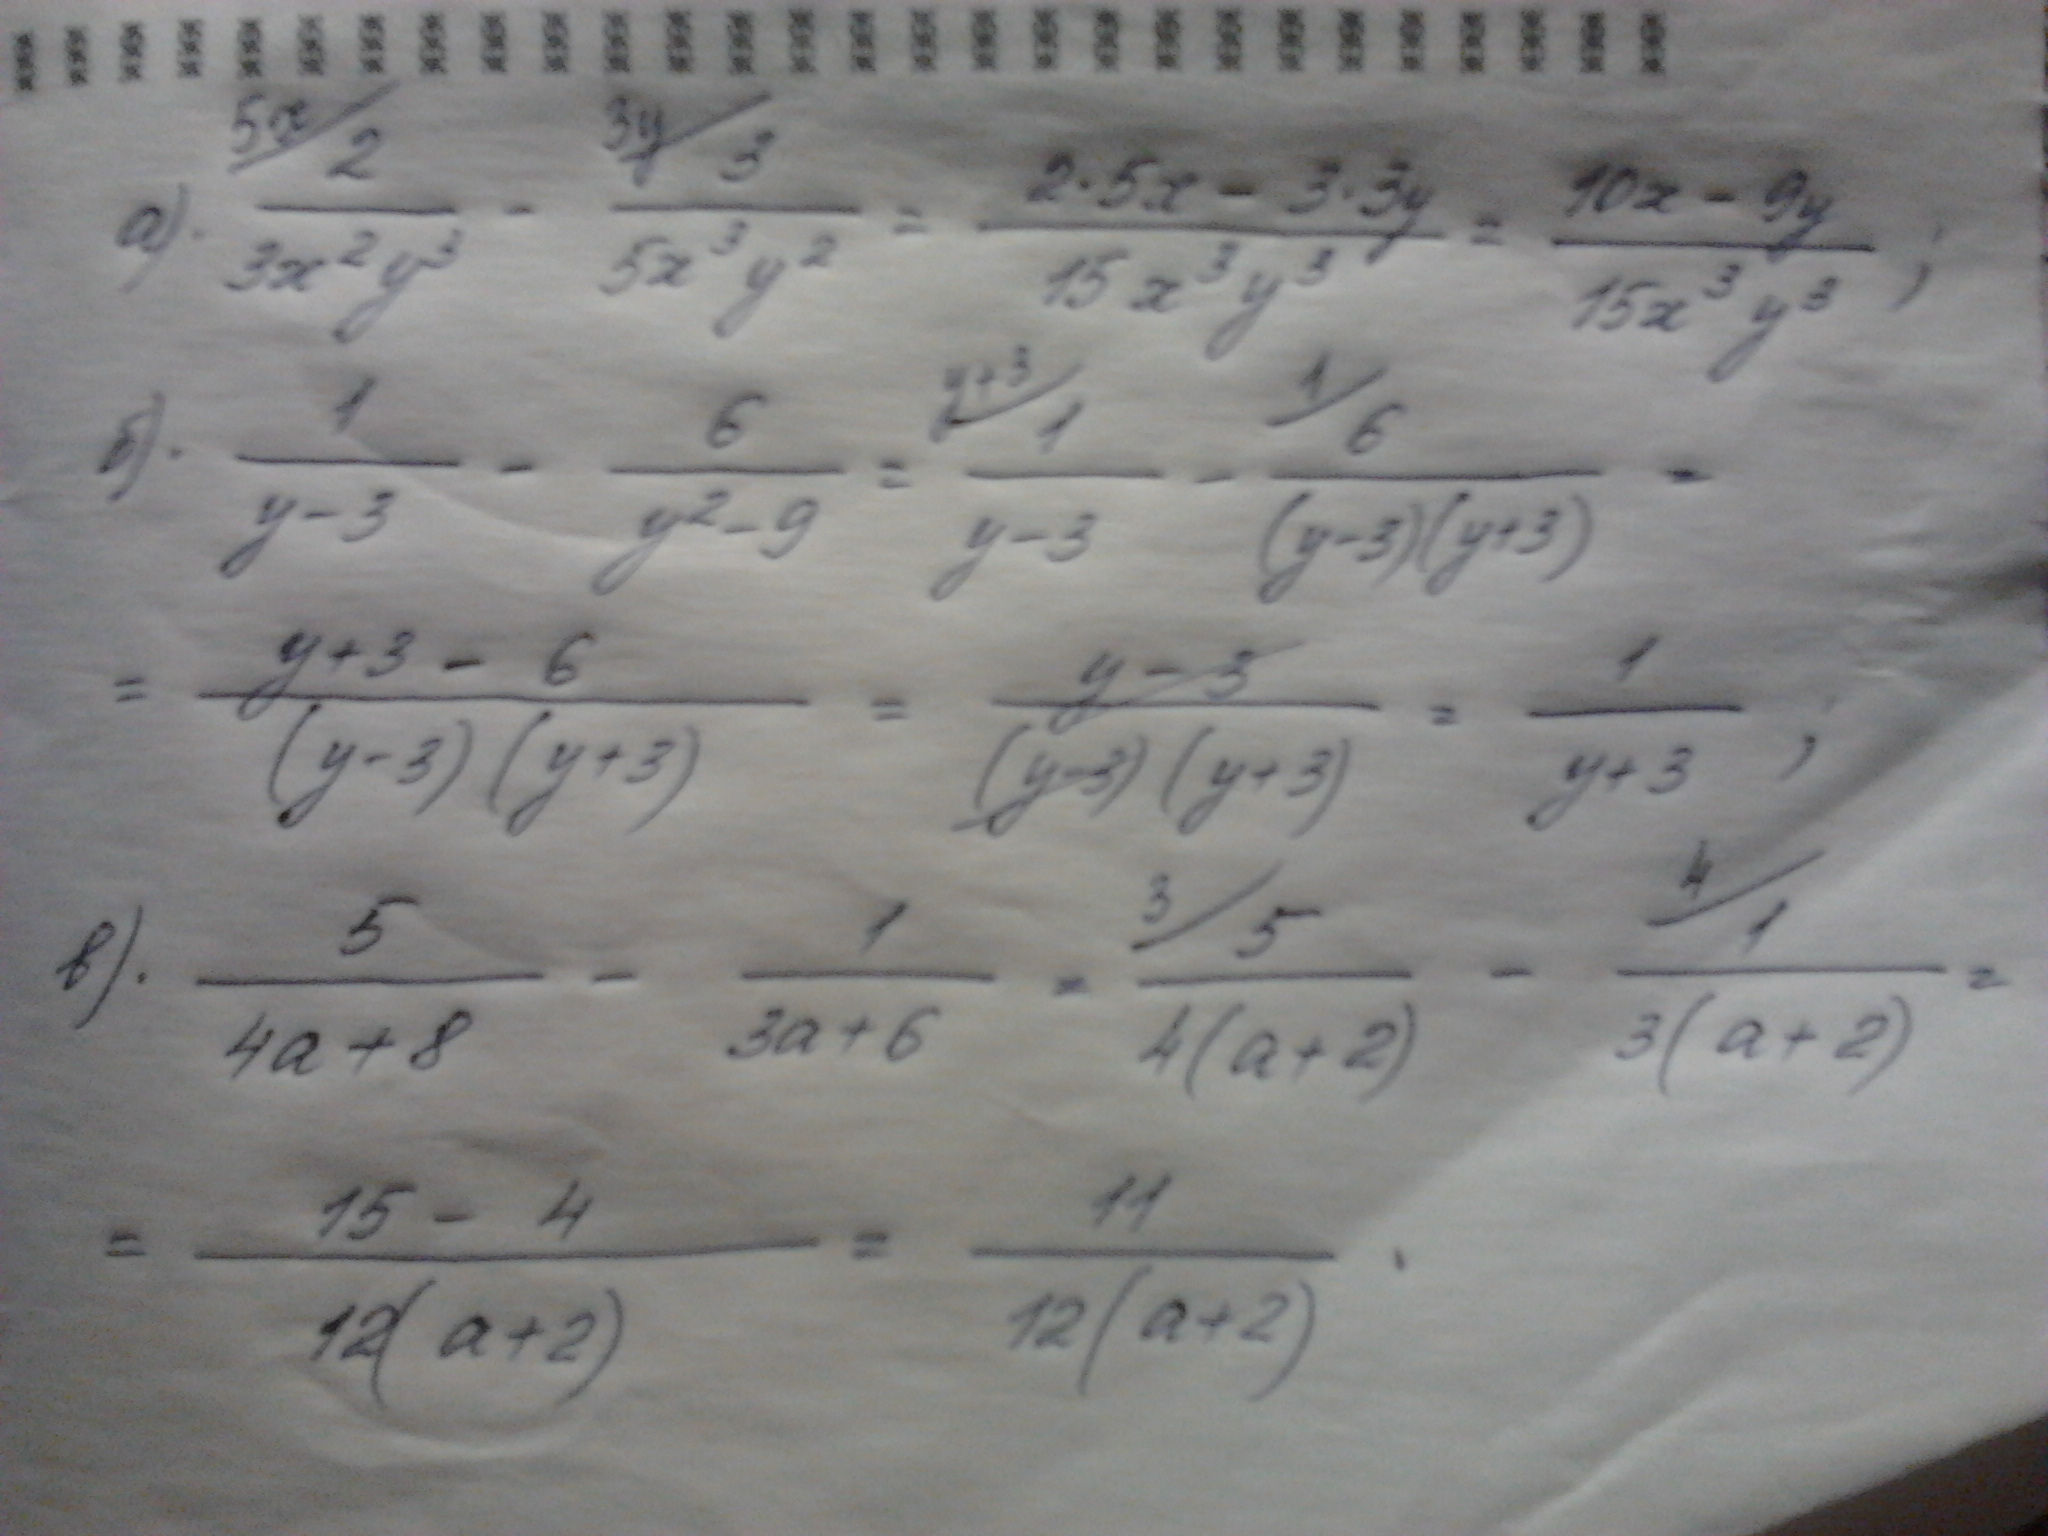 а). 5x/ 2 / 3x²y³ - 3y/ 3 / 5x³y² = 2·5x - 3·3y / 15x³y³ = 10x - 9y / 15x³y³ ;
б). 1 / y-3 - 6 / y²-9 = y+3/ 1 / y-3 - 1/ 6 / (y-3)(y+3) =
= y+3 - 6 / (y-3)(y+3) = y-3 / (y-3)(y+3) = 1 / y+3 ;
в). 5 / 4a+8 - 1 / 3a+6 = 3/ 5 / 4(a+2) - 4/ 1 / 3(a+2) =
= 15 - 4 / 12(a+2) = 11 / 12(a+2) .